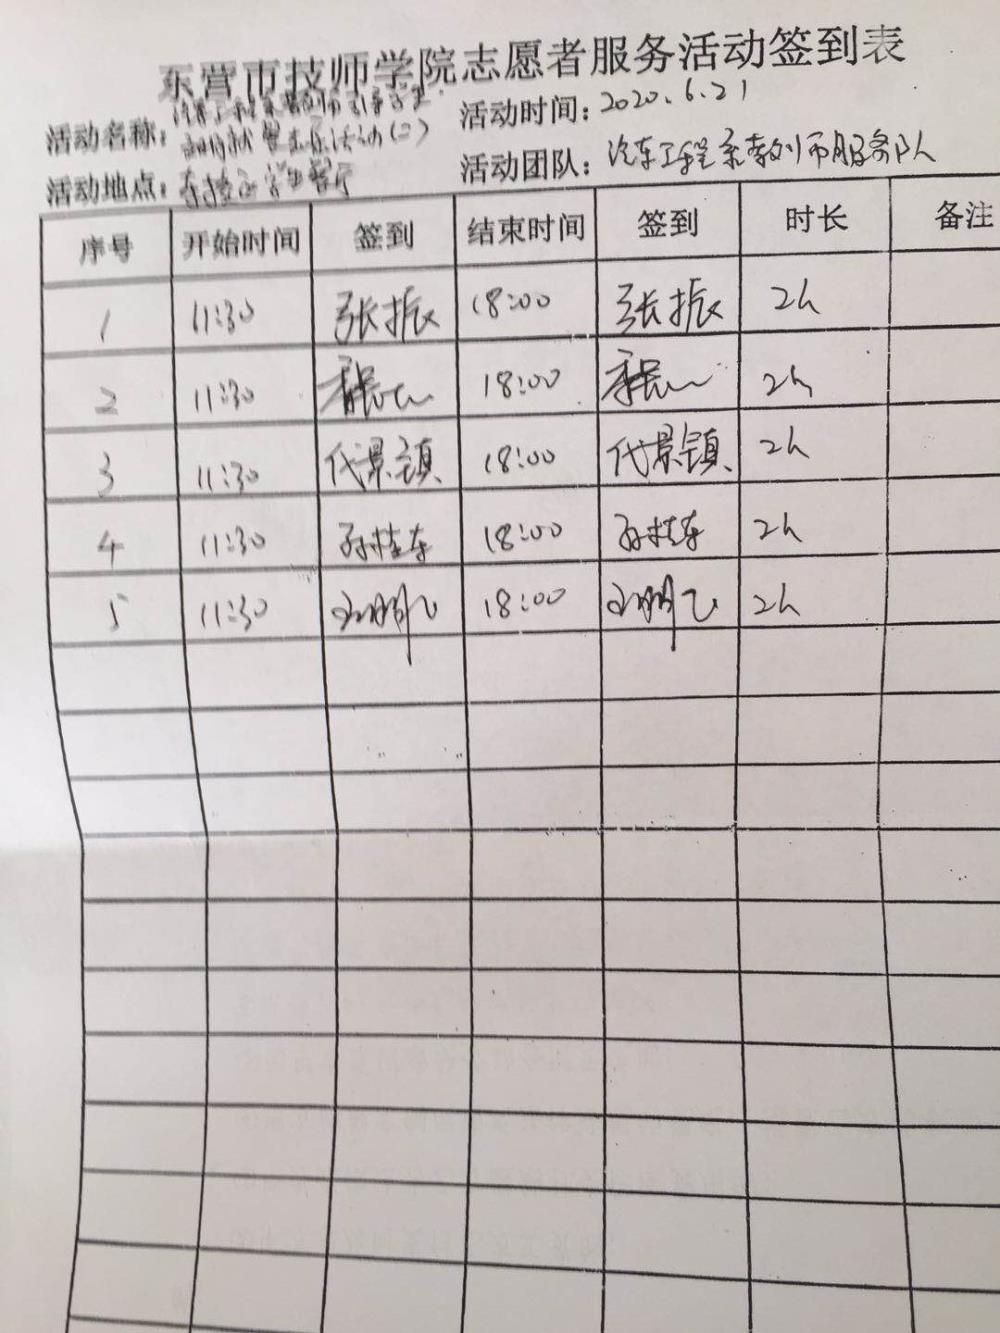 东营市技师学院志愿者服务活动签到表
活动名称: 活动时间: 2020.6.21
活动(二)
活动地点: 学生餐厅 活动团队: 汽车工程系教师服务队
序号 开始时间 签到 结束时间 签到 时长 备注
1 11:30 张振 18:00 张振 2h
2 11:30 18:00 2h
3 11:30 代景镇 18:00 代景镇 2h
4 11:30 孙桂东 18:00 孙桂东 2h
5 11:30 18:00 2h